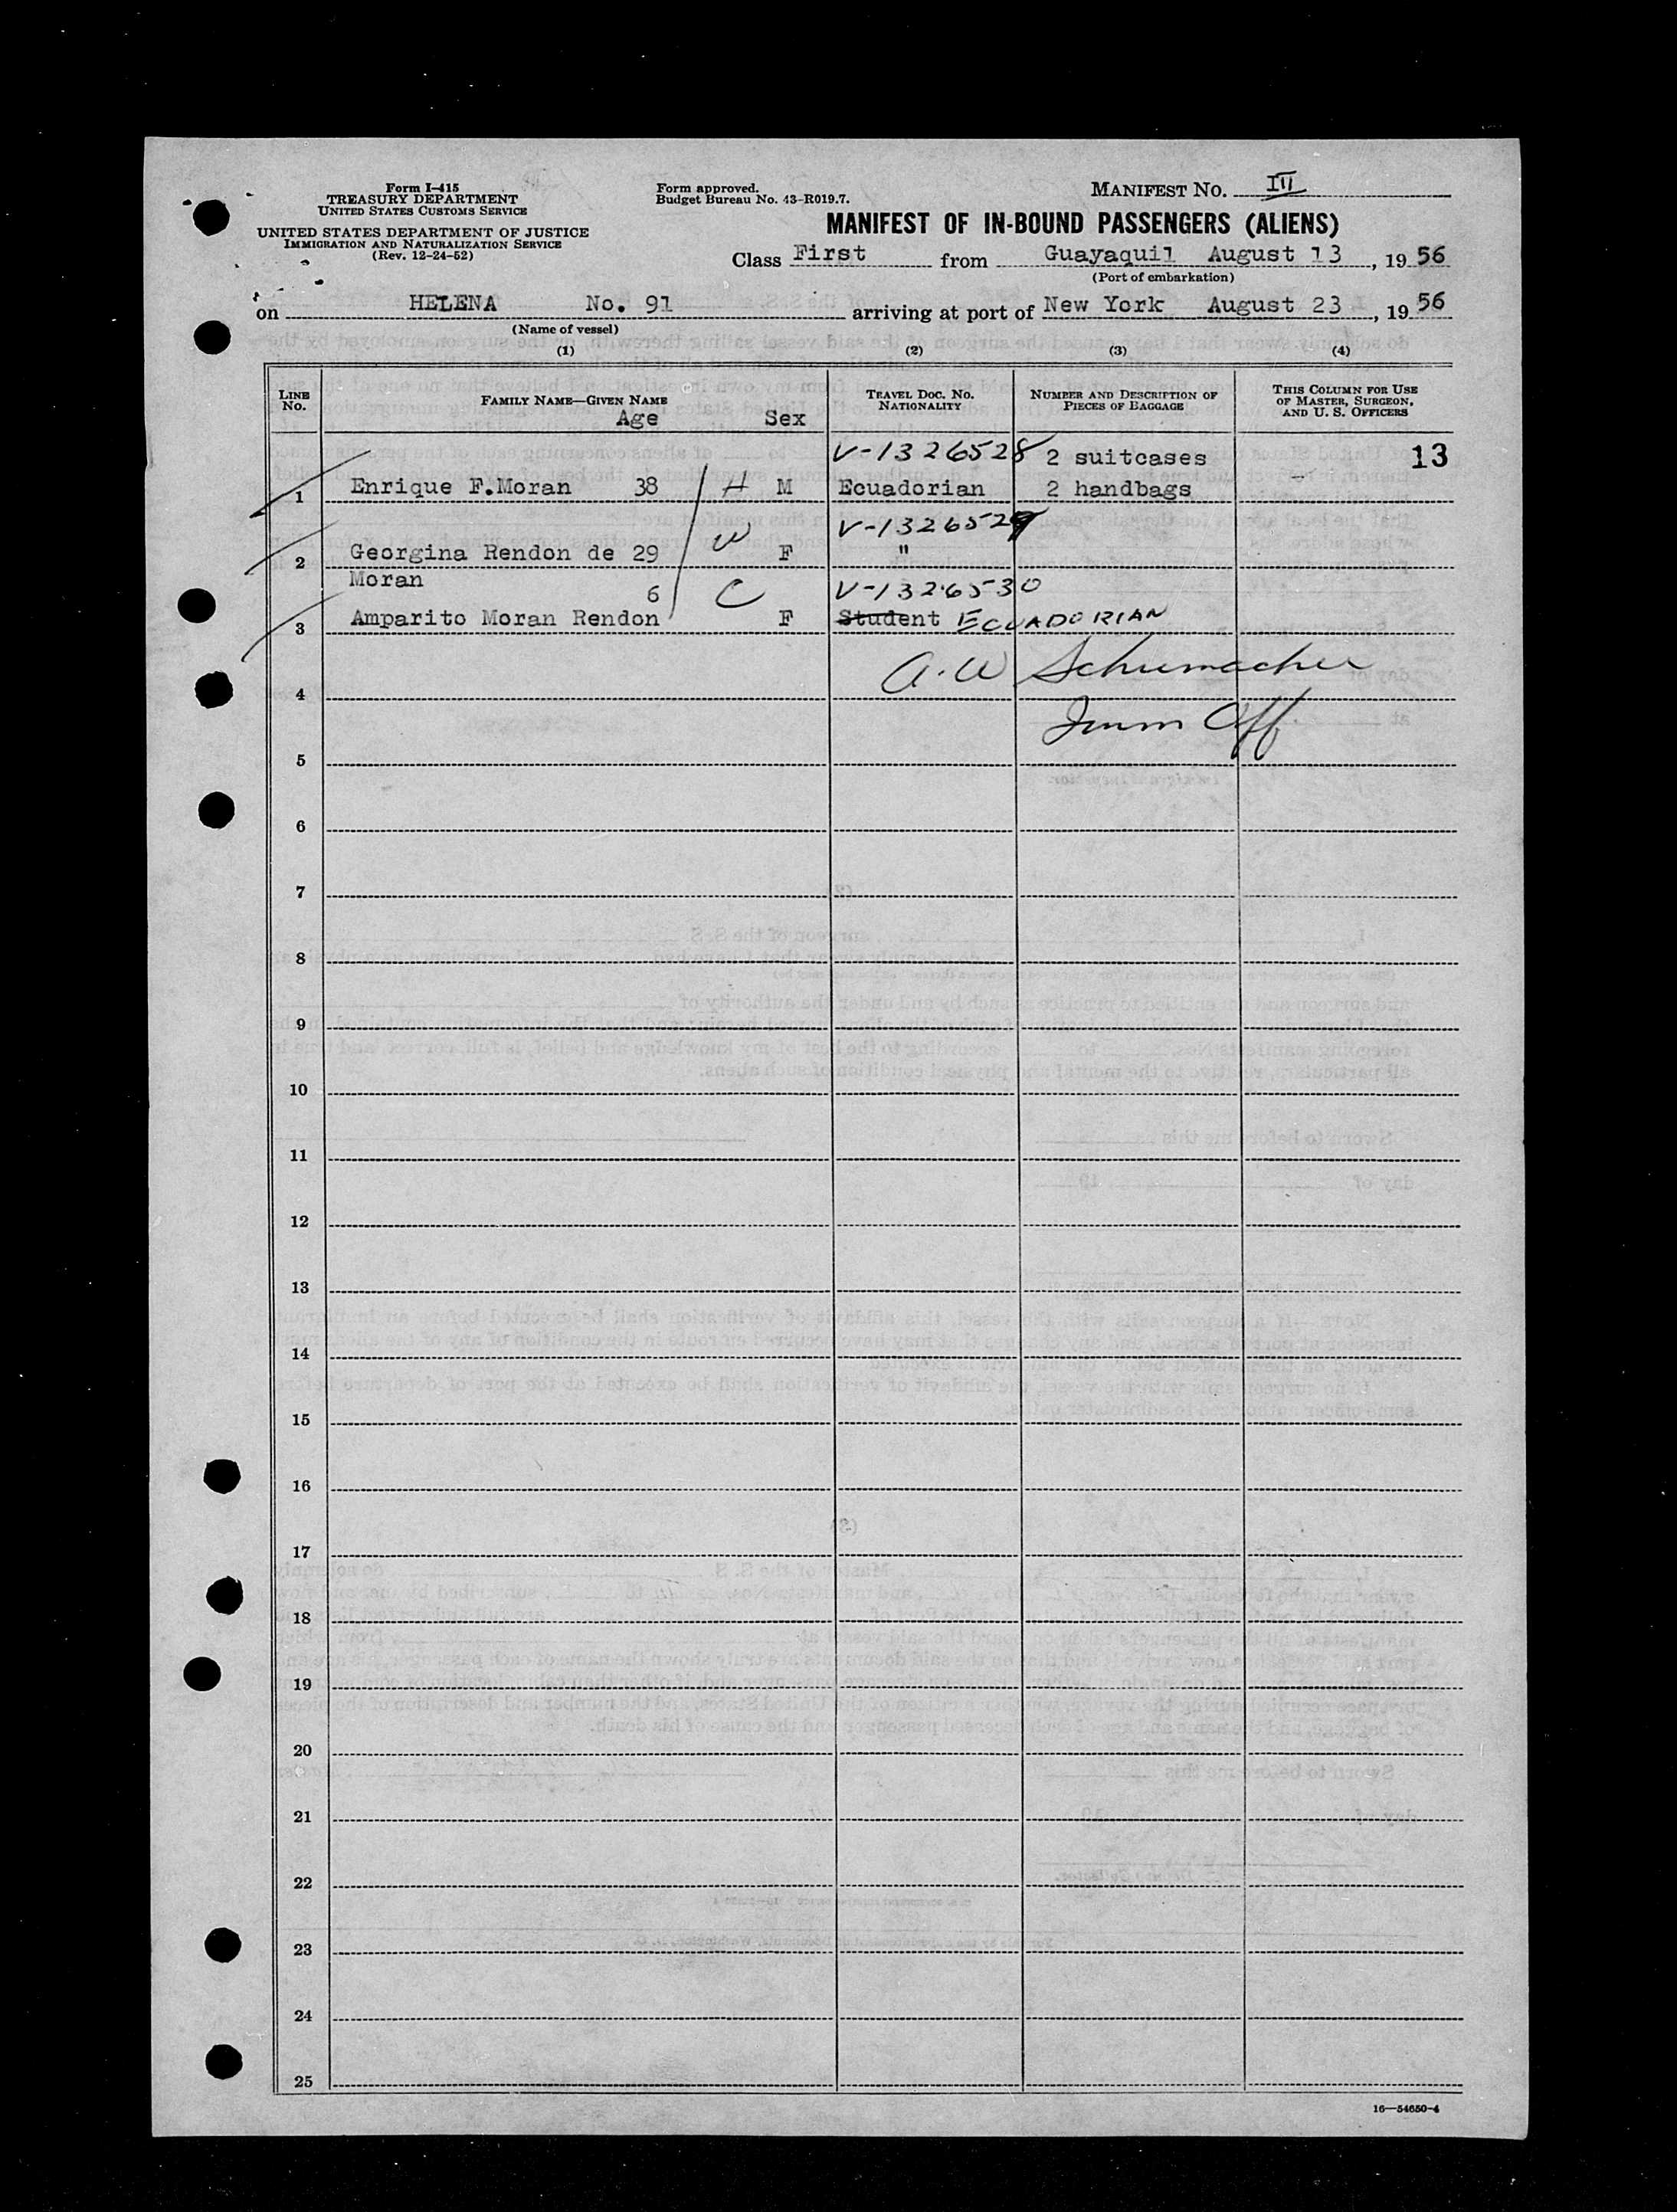 Form I-415
TREASURY DEPARTMENT
UNITED STATES CUSTOMS SERVICE
UNITED STATES DEPARTMENT OF JUSTICE
IMMIGRATION AND NATURALIZATION SERVICE
(Rev. 12-24-52)
Form approved.
Budget Bureau No. 43-R019.7.
MANIFEST NO. III
MANIFEST OF IN-BOUND PASSENGERS (ALIENS)
Class First from Guayaquil August 13, 1956
(Port of embarkation)
on HELENA No. 91 arriving at port of New York August 23, 1956
(Name of vessel)
(1) (2) (3) (4)
LINE No. FAMILY NAME—GIVEN NAME Age Sex TRAVEL DOC. NO. NATIONALITY NUMBER AND DESCRIPTION OF PIECES OF BAGGAGE THIS COLUMN FOR USE OF MASTER, SURGEON, AND U. S. OFFICERS
V-1326528 2 suitcases 13
1 Enrique F.Moran 38 H M Ecuadorian 2 handbags
V-1326529
2 Georgina Rendon de 29 W F "
Moran
6 C V-1326530
3 Amparito Moran Rendon F Student ECUADORIAN
A.W Schumacher
4
Imm Off
5
6
7
8
9
10
11
12
13
14
15
16
17
18
19
20
21
22
23
24
25
16—54650-4